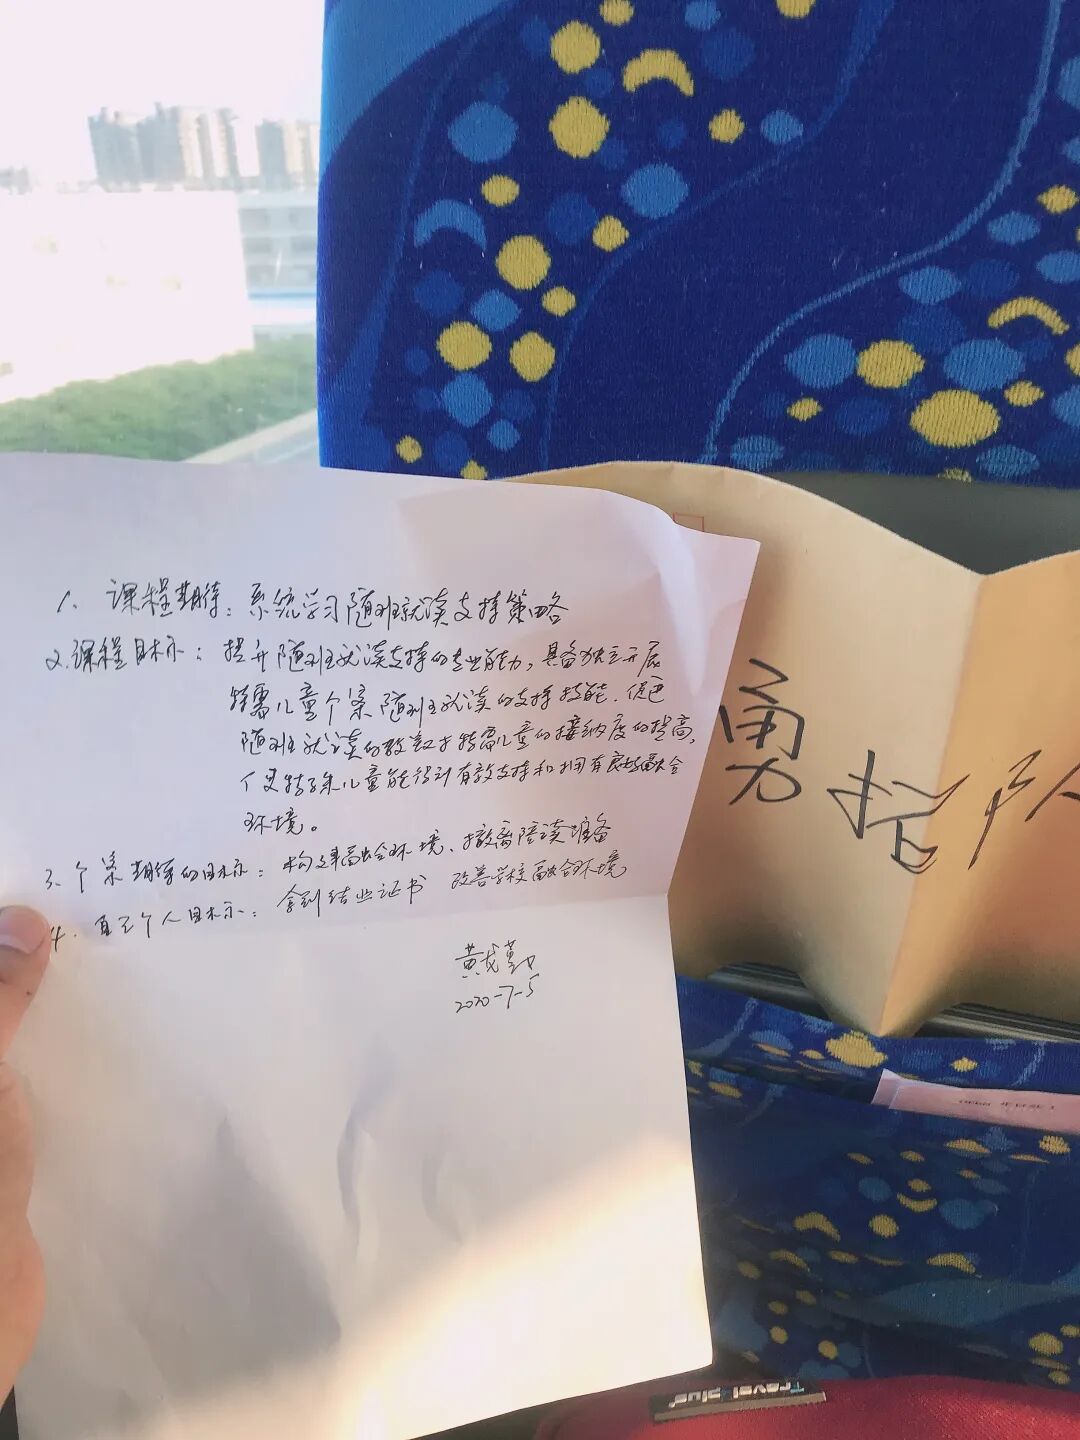 1、课程期待：系统学习随班就读支持策略
2、课程目标：提升随班就读支持的专业能力，具备独立开展
特需儿童个案随班就读的支持技能、促进
随班就读的教师对特需儿童的接纳度的提高，
使特殊儿童能得到有效支持和拥有良好融合
环境。
3、个案期待的目标：构建融合环境、撤离陪读准备
4、自己个人目标：拿到结业证书 改善学校融合环境
2020-7-5
勇
Travel plus